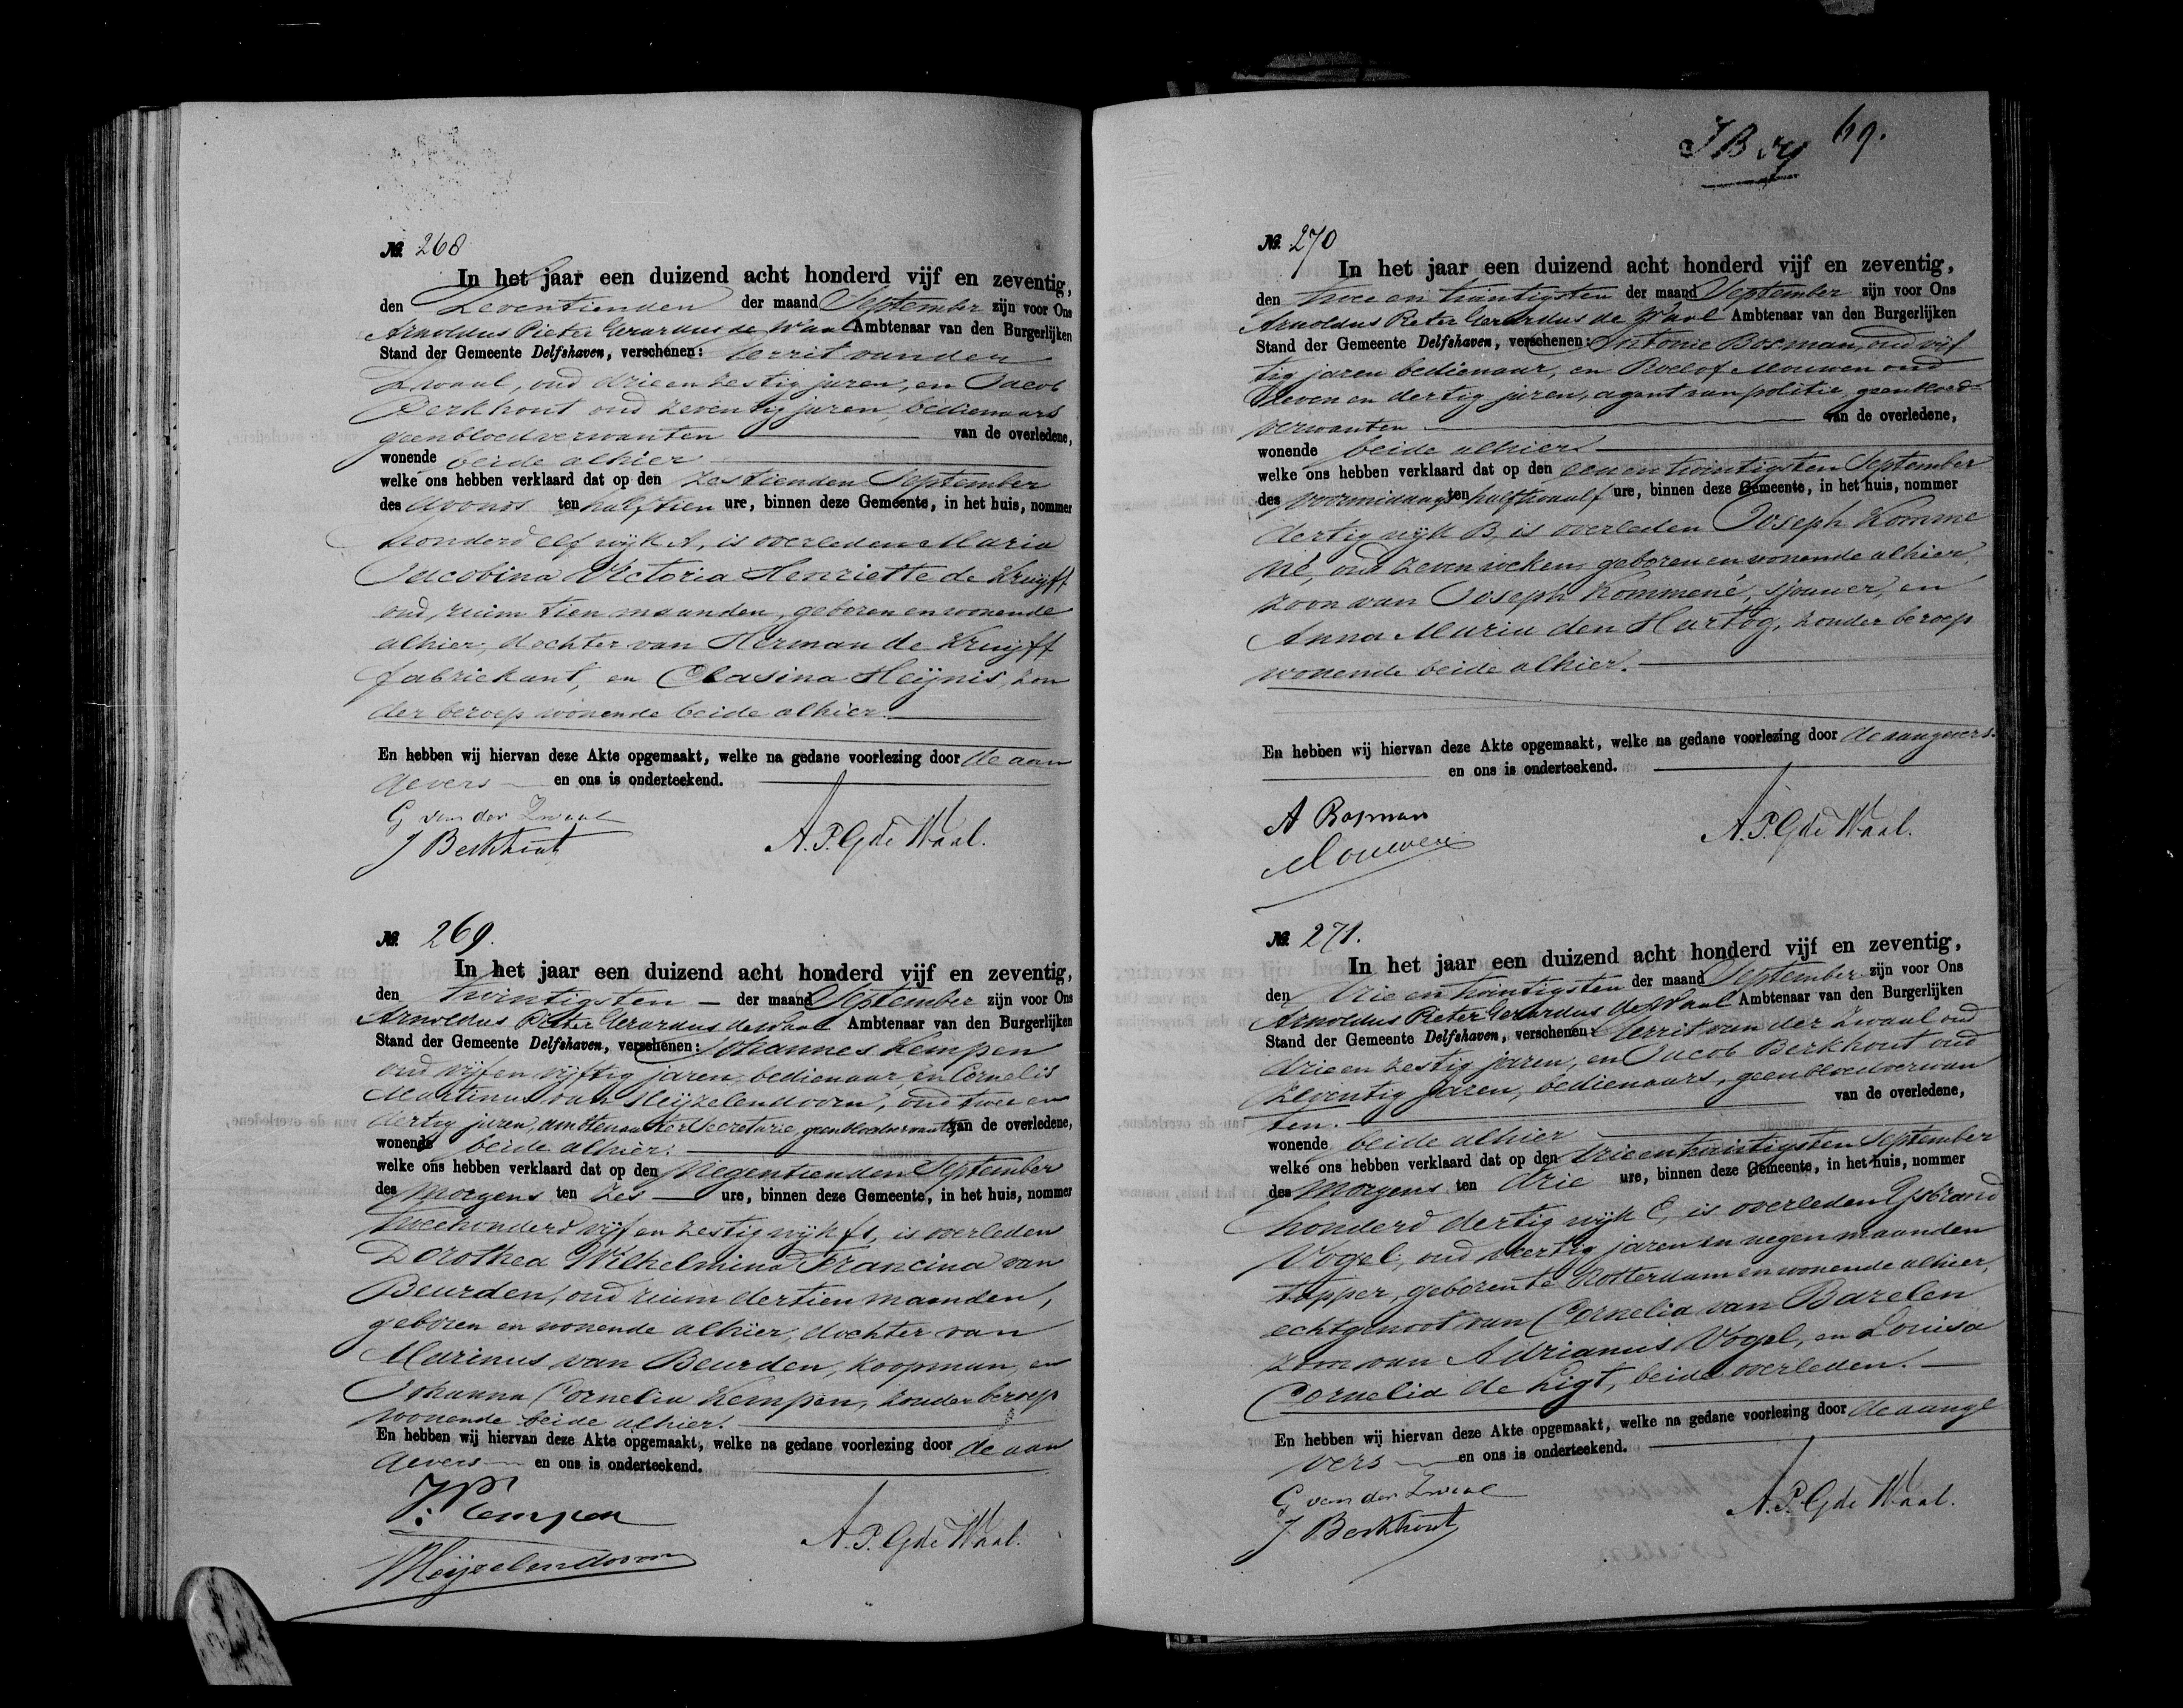 № 268
In het jaar een duizend acht honderd vijf en zeventig,
den Zeventienden der maand September zijn voor Ons
Arnoldus Pieter Gerardus de Waal Ambtenaar van den Burgerlijken
Stand der Gemeente Delfshaven, verschenen: Gerrit van den
Zwaal, oud drie en zestig jaren, en Jacob
Berkhout oud zeventig jaren, bedienaars
geenbloedverwanten van de overledene,
wonende beide alhier
welke ons hebben verklaard dat op den zestienden September
des avonds ten half tien ure, binnen deze Gemeente, in het huis, nommer
honderd elf wijk A, is overleden Maria
Jacobina Victoria Henriette de Kruijff
oud, ruim tien maanden, geboren en wonende
alhier, dochter van Herman de Kruijff
fabriekant, en Clasina Heijnis, zon
der beroep wonende beide alhier.
En hebben wij hiervan deze Akte opgemaakt, welke na gedane voorlezing door de aan
gevers en ons is onderteekend.
G van der Zwaal
J Berkhout A.P.G de Waal.
№ 269.
In het jaar een duizend acht honderd vijf en zeventig,
den twintigsten der maand September zijn voor Ons
Arnoldus Pieter Gerardus de Waal Ambtenaar van den Burgerlijken
Stand der Gemeente Delfshaven, verschenen: Johannes Kempen
oud vijf en vijftig jaren, bedienaar, en Cornelis
Martinus van Meijzelendoorn, oud twee en
dertig jaren, ambtenaar ter Secretarie geenbloedverwanten van de overledene,
wonende beide alhier.
welke ons hebben verklaard dat op den Negentienden September
des Morgens ten zes ure, binnen deze Gemeente, in het huis, nommer
tweehonderd vijf en zestig wijk A, is overleden
Dorothea Wilhelmina Francina van
Beurden, oud ruim dertien maanden,
geboren en wonende alhier, dochter van
Marinus van Beurden, koopman, en
Johanna Cornelia Kempen, zonder beroep
wonende beide alhier.
En hebben wij hiervan deze Akte opgemaakt, welke na gedane voorlezing door de aan
gevers en ons is onderteekend.
J. Kempen
Meijzelendoorn A.P.G de Waal.
69.
№ 270
In het jaar een duizend acht honderd vijf en zeventig,
den twee en twintigsten der maand September zijn voor Ons
Arnoldus Pieter Gerardus de Waal Ambtenaar van den Burgerlijken
Stand der Gemeente Delfshaven, verschenen: Antonie Bosman, oud vijf
tig jaren bedienaar, en Roelof Mouwen oud
zeven en dertig jaren, agent van politie, geenbloed
verwanten van de overledene,
wonende beide alhier
welke ons hebben verklaard dat op den een en twintigsten September
des voormiddags ten half twaalf ure, binnen deze Gemeente, in het huis, nommer
dertig wijk B, is overleden Joseph Komme
né, oud zeven weken geboren en wonende alhier,
zoon van Joseph Kommené, sjouwer, en
Anna Maria den Hartog, zonder beroep
wonende beide alhier.
En hebben wij hiervan deze Akte opgemaakt, welke na gedane voorlezing door de aangevers
en ons is onderteekend.
A Bosman
Mouwen A.P.G de Waal.
№ 271.
In het jaar een duizend acht honderd vijf en zeventig,
den drie en twintigsten der maand September zijn voor Ons
Arnoldus Pieter Gerardus de Waal Ambtenaar van den Burgerlijken
Stand der Gemeente Delfshaven, verschenen: Gerrit van der Zwaal oud
drie en zestig jaren, en Jacob Berkhout oud
zeventig jaren, bedienaars, geenbloedverwan
ten. van de overledene,
wonende beide alhier
welke ons hebben verklaard dat op den drie en twintigsten September
des Morgens ten drie ure, binnen deze Gemeente, in het huis, nommer
honderd dertig wijk C, is overleden IJsbrand
Vogel, oud veertig jaren en negen maanden
tapper, geboren te Rotterdam en wonende alhier,
echtgenoot van Cornelia van Barelen
zoon van Adrianus Vogel, en Louisa
Cornelia de Ligt, beide overleden.
En hebben wij hiervan deze Akte opgemaakt, welke na gedane voorlezing door de aange
vers en ons is onderteekend.
G van der Zwaal
J Berkhout A.P.G de Waal.